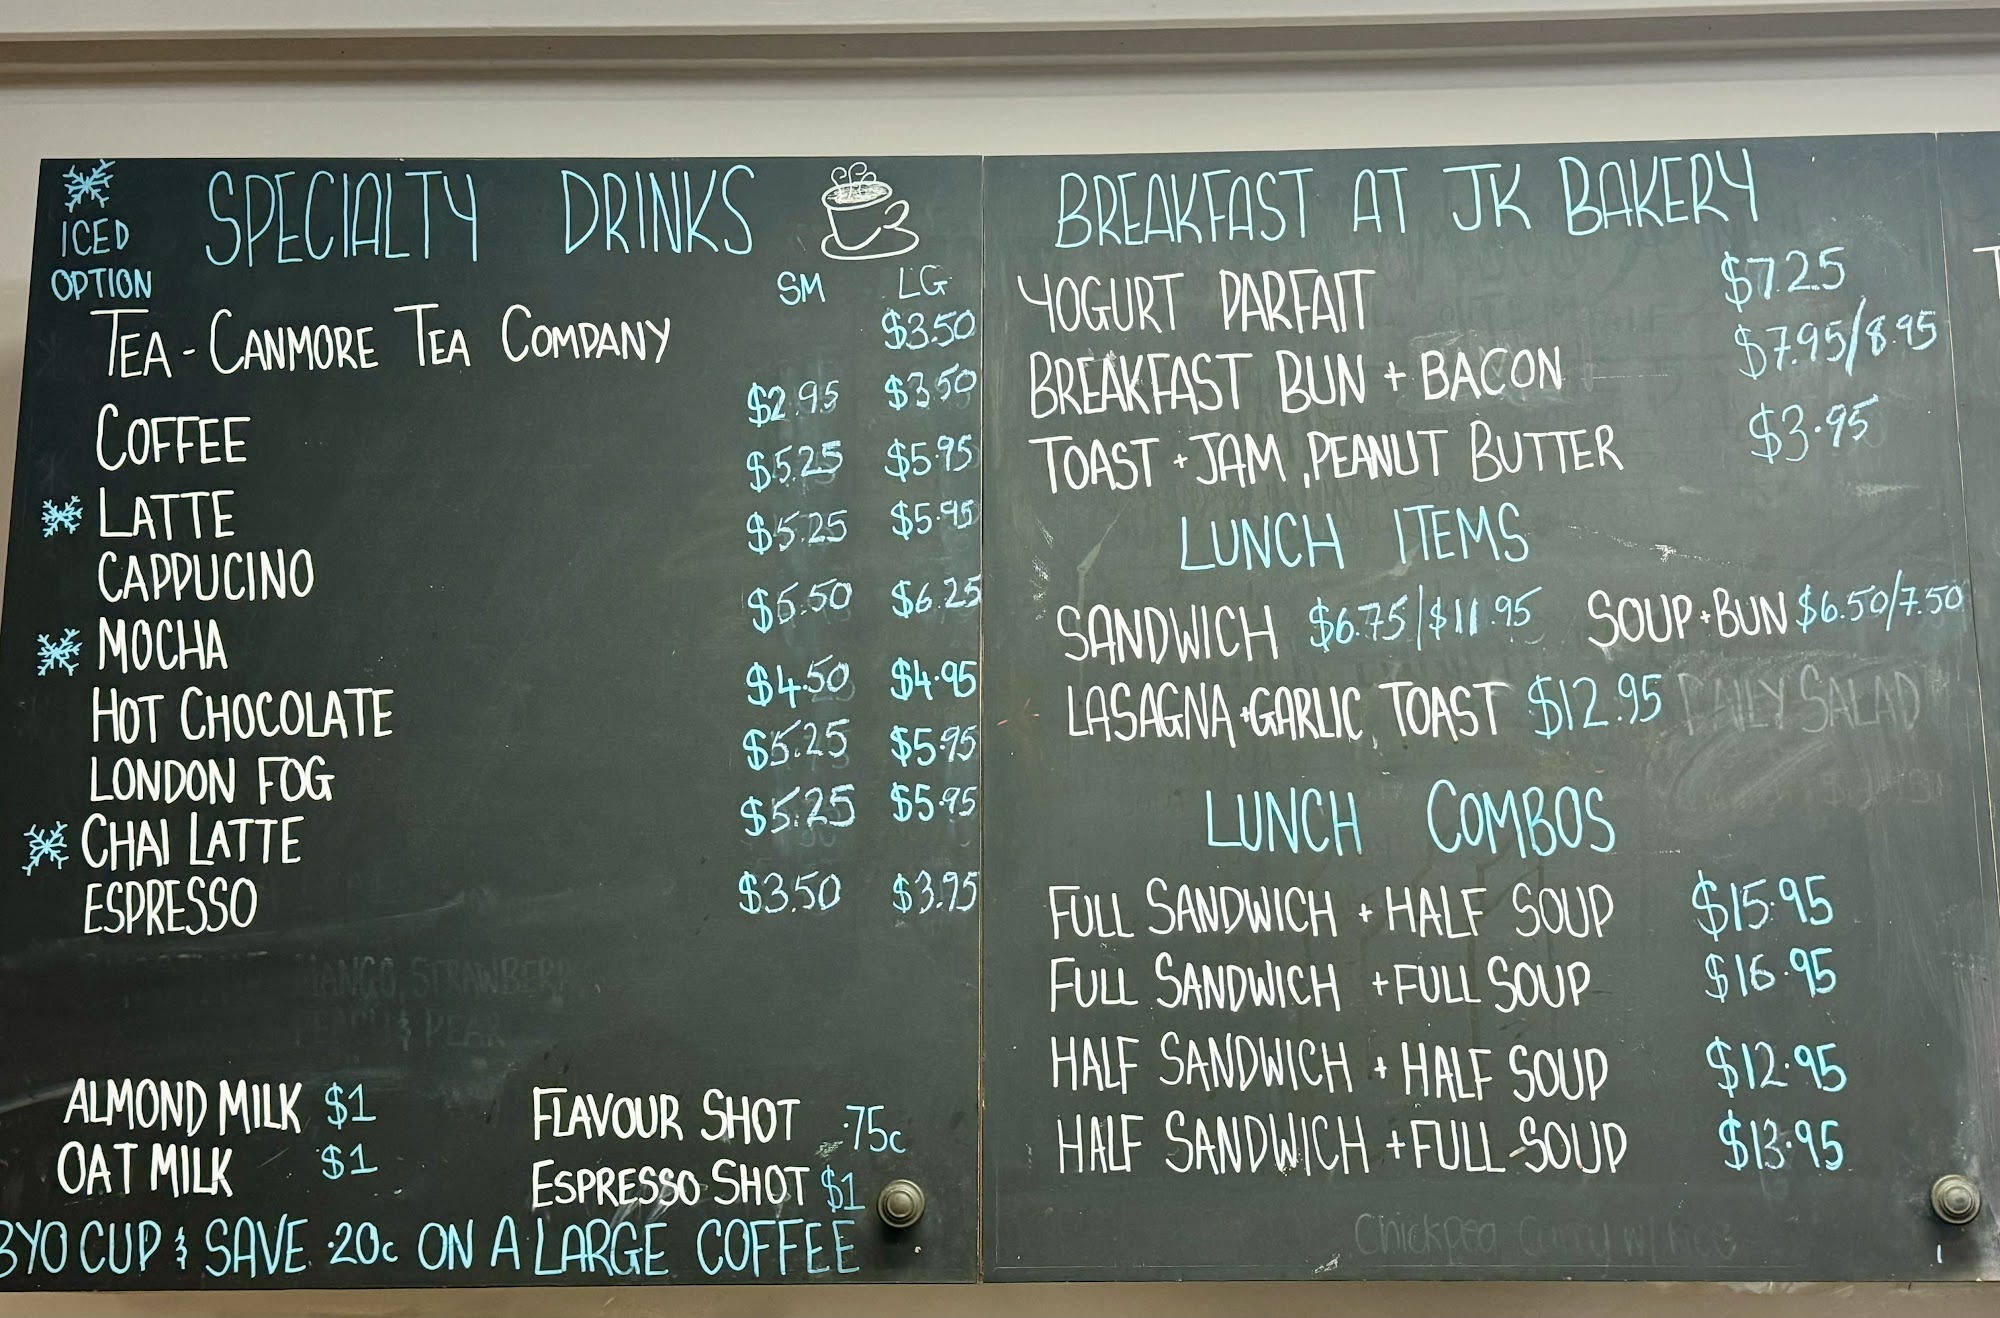 ICED
OPTION
SPECIALTY DRINKS
SM LG
TEA - CANMORE TEA COMPANY $3.50
COFFEE $2.95 $3.50
LATTE $5.25 $5.95
CAPPUCINO $5.25 $5.95
MOCHA $5.50 $6.25
HOT CHOCOLATE $4.50 $4.95
LONDON FOG $5.25 $5.95
CHAI LATTE $5.25 $5.95
ESPRESSO $3.50 $3.95
MANGO, STRAWBERRY
PEACH & PEAR
ALMOND MILK $1
OAT MILK $1
FLAVOUR SHOT .75c
ESPRESSO SHOT $1
BYO CUP & SAVE .20c ON A LARGE COFFEE
BREAKFAST AT JK BAKERY
YOGURT PARFAIT $7.25
BREAKFAST BUN + BACON $7.95/8.95
TOAST + JAM, PEANUT BUTTER $3.95
LUNCH ITEMS
SANDWICH $6.75/$11.95 SOUP + BUN $6.50/7.50
LASAGNA + GARLIC TOAST $12.95 DAILY SALAD
LUNCH COMBOS
FULL SANDWICH + HALF SOUP $15.95
FULL SANDWICH + FULL SOUP $16.95
HALF SANDWICH + HALF SOUP $12.95
HALF SANDWICH + FULL SOUP $13.95
Chickpea Curry w/ Rice